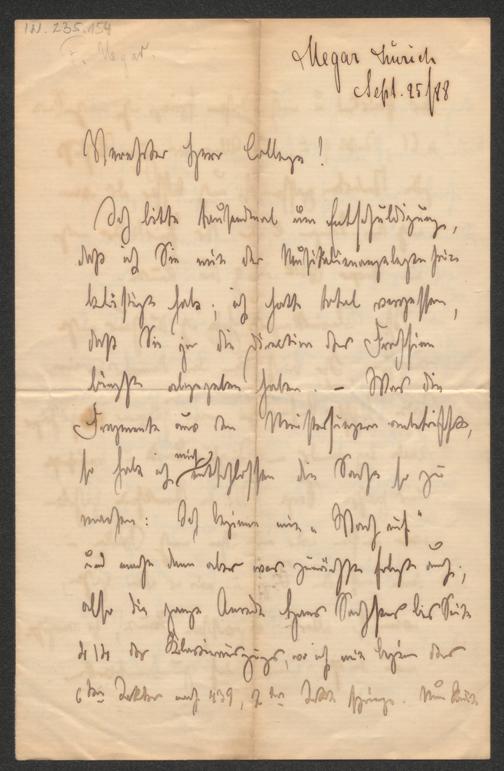 IN. 235.154
F. Hegar.
Hegar Zürich
Sept. 25/88
Verehrter Herr College!
Ich bitte tausendmal um Entschuldigung,
daß ich Sie mit der Musikalienangelegenheit
belästigt habe; ich hatte total vergessen,
daß Sie ja die Direction des
längst abgegeben haben. – Was die
Fragmente aus den Meistersingern anbetrifft,
so habe ich mich entschlossen die Sache so zu
machen: Ich beginne mit „Wach auf“
und mache dann aber was zunächst folgt auch;
also die ganze Anrede Hans Sachsens bis Seite
des Klavierauszugs, wo ich mit Beginn des
6ten Taktes auf 439, 2ter Takt springe. Nun